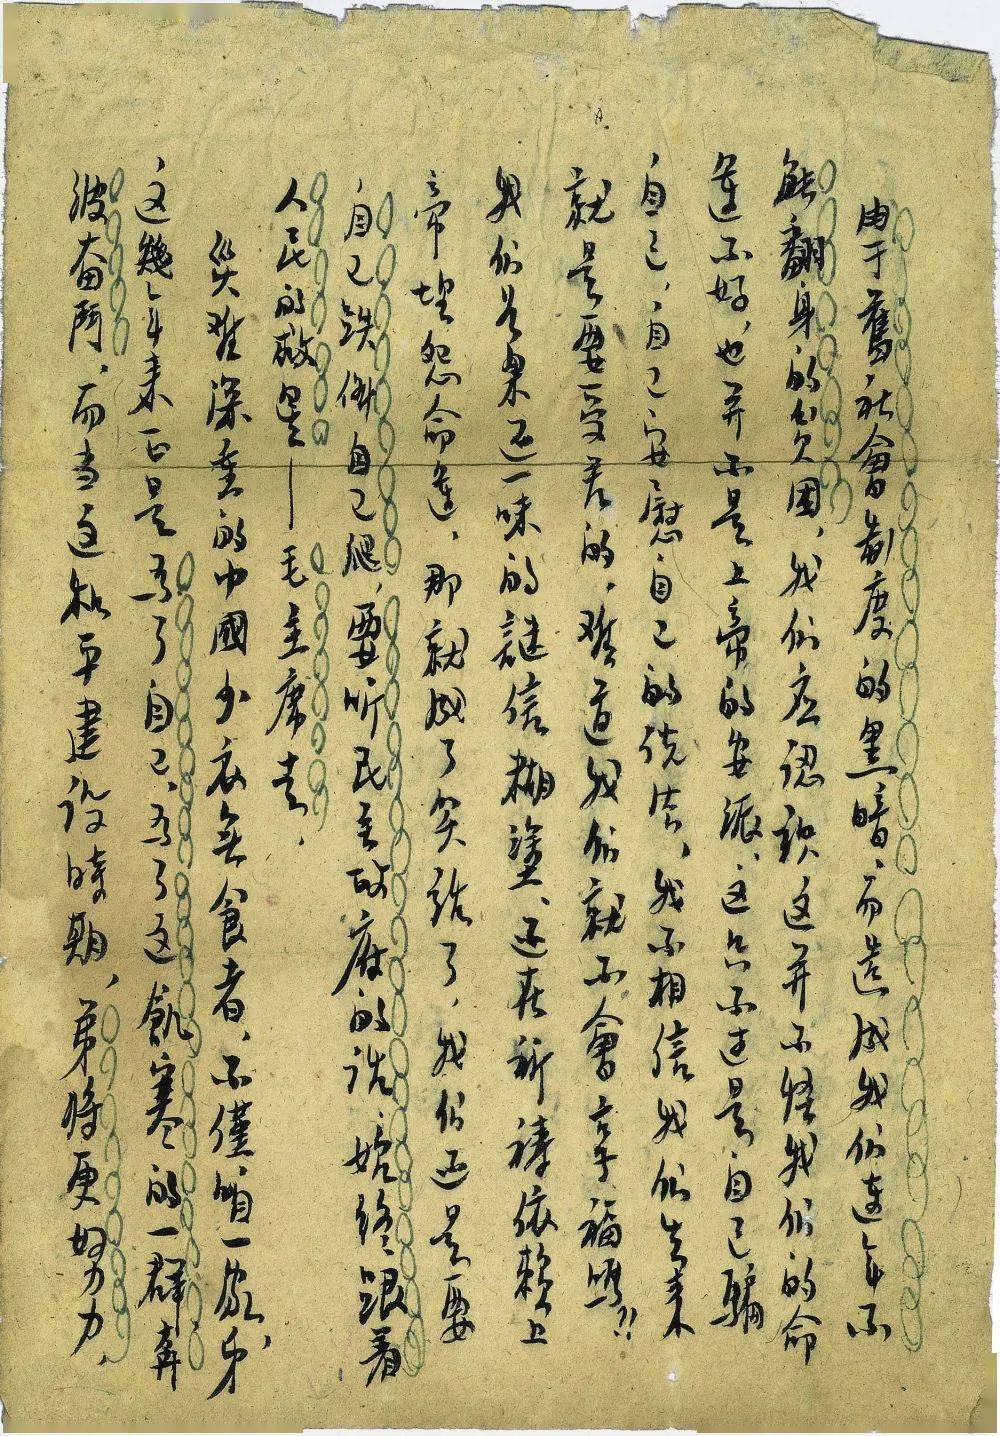 由于舊社會制度的黑暗、而造成我们連年不
能翻身的贫困，我们应认識这并不怪我们的命
運不好，也并不是上帝的安派、这只不过是自己騙
自己，自己安慰自己的说法，我不相信我们生来
就是要受苦的，难道我们就不會享福嗎!!
我们若果还一味的謎信糊塗、还在祈祷依赖上
帝埋怨命運，那就成了笑話了，我们还是要
自己跌倒自己爬，要听民主政府的話，始终跟着
人民的救星——毛主席走，
災难深重的中國少衣無食者，不僅咱一家，弟
这幾年来正是為了自己、為了这飢寒的一群奔
波奋鬥，而当这和平建設時期，弟将更努力，